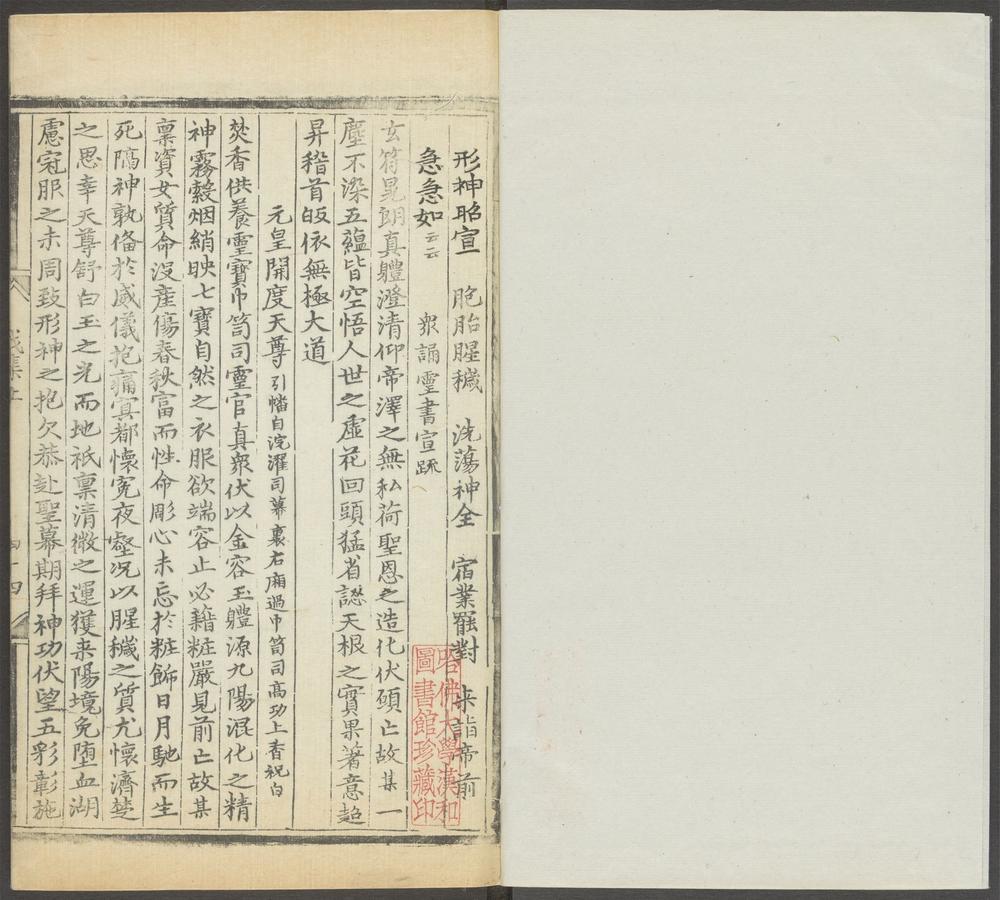 形神昭宣 胞胎腥穢 洗蕩神全 宿業寃對 来詣帝前
急急如云云 衆誦靈書宣疏
玄符晃朗真軆澄清仰帝澤之無私荷聖恩之造化伏願亡故某一
塵不染五藴皆空悟人世之虛花回頭猛省認天根之實果著意超
昇稽首皈依無極大道
元皇開度天尊引幡自浣濯司幕裏右廂過巾笥司高功上香祝白
焚香供養靈寶巾笥司靈官真衆伏以金容玉軆源九陽混化之精
神霧縠烟綃映七寶自然之衣服欲端容止必藉粧嚴見前亡故某
禀資女質命沒産傷春秋富而性命彫心未忘於粧飾日月馳而生
死隔神孰備於威儀抱痛冥都懷寃夜壑况以腥穢之質尤懷濟楚
之思幸天尊舒白玉之光而地祇禀清微之運獲来陽境免堕血湖
慮冠服之未周致形神之抱欠恭赴聖幕期拜神功伏望五彩彰施
集上
四十四
哈佛大學漢和
圖書館珍藏印